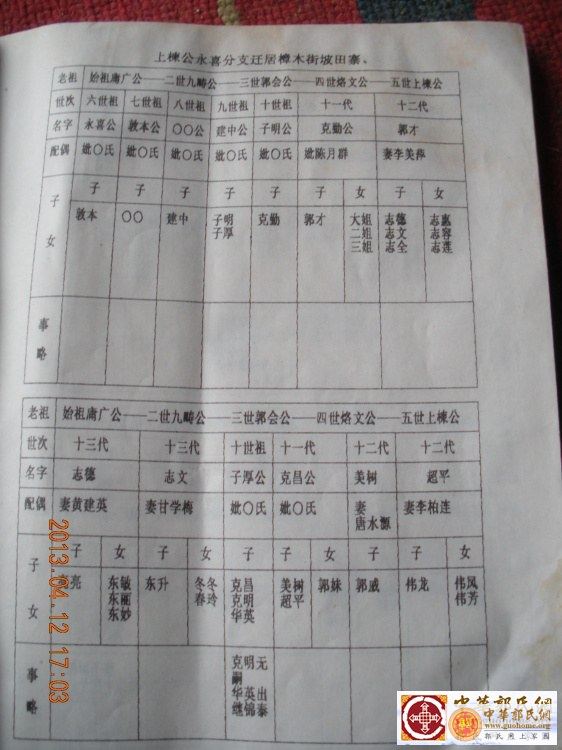 上栋公永喜分支迁居樟木街坡田寨、
老祖 始祖庸广公——二世九畴公——三世郭会公——四世烙文公——五世上栋公
世次 六世祖 七世祖 八世祖 九世祖 十世祖 十一代 十二代
名字 永喜公 敦本公 〇〇公 建中公 子明公 克勤公 郭才
配偶 妣〇氏 妣〇氏 妣〇氏 妣〇氏 妣〇氏 妣陈月群 妻李美萍
子女 子 子 子 子 子 子 女 子 女
敦本 〇〇 建中 子明 克勤 郭才 大姐 志德 志惠
子厚 二姐 志文 志容
三姐 志全 志莲
事略
老祖 始祖庸广公——二世九畴公——三世郭会公——四世烙文公——五世上栋公
世次 十三代 十三代 十世祖 十一代 十二代 十二代
名字 志德 志文 子厚公 克昌公 美树 超平
配偶 妻黄建英 妻甘学梅 妣〇氏 妣〇氏 妻 妻李柏连
唐水源
子女 子 女 子 女 子 子 女 子 子 女
亮 东敏 东升 冬冬 克昌 美树 郭妹 郭威 伟龙 伟风
东丽 春玲 克明 超平 伟芳
东妙 华英
事略 克明无
嗣
华英出
继锦泰
2013.04.12 17:03
中华郭氏网
中華郭氏網
http://www.guohome.org
郭氏网上家园